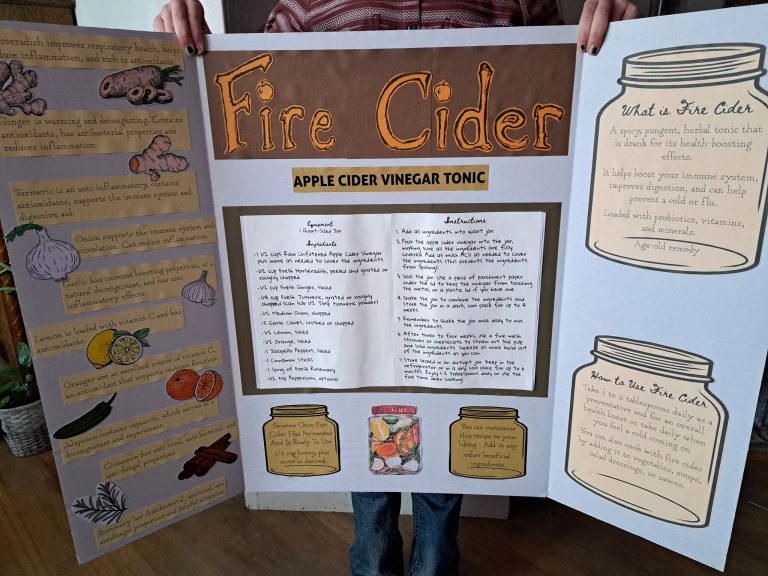 Horseradish improves respiratory health, helps
reduce inflammation, and is rich is antioxidants.
Ginger is warming and decongesting. Contains
antioxidants, has antibacterial properties and
reduces inflammation.
Turmeric is an anti-inflammatory, contains
antioxidants, supports the immune system and
digestive aid.
Onion supports the immune system and
circulation. Can reduce inflammation.
Garlic has immune boosting properties, is a
natural decongestant, and has anti-
inflammatory effects.
Lemon is loaded with vitamin C and has
antioxidants.
Oranges are an excellent source of vitamin C,
an antioxidant that supports immune function.
Jalapenos contains capsaicin, which serves as a
decongestant and expectorant.
Cinnamon has anti-viral, anti-bacterial, and
anti-fungal properties.
Rosemary has Antibacterial, antiviral, and
antifungal properties and helpful vitamins.
Fire Cider
APPLE CIDER VINEGAR TONIC
Equipment
1 Quart-Sized Jar
Ingredients
-1 ½ cups Raw Unfiltered Apple Cider Vinegar
plus more as needed to cover the ingredients
-½ cup Fresh Horseradish, peeled and grated or
roughly chopped
-½ cup Fresh Ginger, sliced
-¼ cup Fresh Turmeric, grated or roughly
chopped (can sub ½ Tbsp turmeric powder)
-½ Medium Onion, chopped
-5 Garlic Cloves, crushed or chopped
-½ Lemon, sliced
-½ Orange, sliced
-1 Jalapeño Peppers, sliced
-1 Cinnamon Sticks
-1 Sprig of Fresh Rosemary
-½ tsp Peppercorn, optional
Instructions
1. Add all ingredients into quart jar.
2. Pour the apple cider vinegar into the jar,
making sure all the ingredients are fully
covered. Add as much ACV as needed to cover
the ingredients (this prevents the ingredients
from spoiling).
3. Seal the jar. Use a piece of parchment paper
under the lid to keep the vinegar from touching
the metal, or a plastic lid if you have one.
4. Shake the jar to combine the ingredients and
store the jar in a dark, cool place for up to 4
weeks.
5. Remember to shake the jar once daily to mix
the ingredients.
6. After three to four weeks, use a fine-mesh
strainer or cheesecloth to strain out the pulp
and solid ingredients. Squeeze as much liquid out
of the ingredients as you can.
7. Store sealed in an airtight jar. Keep in the
refrigerator or in a dry, cool place for up to 6
months. Enjoy 1-2 tablespoons daily or use the
fire tonic when cooking!
Sweeten Once Fire
Cider Has Fermented
And Is Ready To Use
1/2 cup honey, plus
more as desired.
You can customize
this recipe to your
liking - Add in any
other beneficial
ingredients
What is Fire Cider
A spicy, pungent, herbal tonic that
is drank for its health-boosting
effects.
It helps boost your immune system,
improves digestion, and can help
prevent a cold or flu.
Loaded with probiotics, vitamins,
and minerals.
Age-old remedy
How to Use Fire Cider
Take 1 to 2 tablespoons daily as a
preventative and for an overall
health boost or take daily when
you feel a cold coming on
You can also cook with fire cider
by adding it to vegetables, soups,
salad dressings, or sauces.